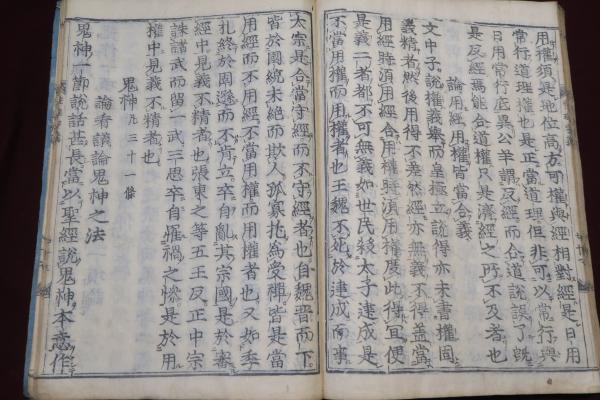 用權須是地位高方可權與經相對經是日用
常行道理權也是正當道理但非可以常行與
日用常行底異公羊謂反經而合道說誤了既
是反經焉能合道權只是濟經之所不及者也
論用經用權皆當合義
文中子說權義舉而皇極立說得亦未盡權固
義精者然後用得不差然經亦無義不得蓋當
用經時須用經合用權時須用權度此得宜便
是義二者都不可無義如世民殺太子建成是
不當用權而用權者也王魏不死於建成而事
太宗是合當守經而不守經者也自魏晉而下
皆於國統未絕而欺人孤寡托為受禪皆是當
用經而不用經不當用權而用權者也又如季
札終於固遜而不肯立卒自亂其宗國是於
經中見義不精者也張柬之等五王反正中宗
誅諸武而留一武三思卒自罹禍之慘是於用
權中見義不精者也
鬼神 凡三十一條
論看議論鬼神之法
鬼神一節說話甚長當以聖經說鬼神本意作